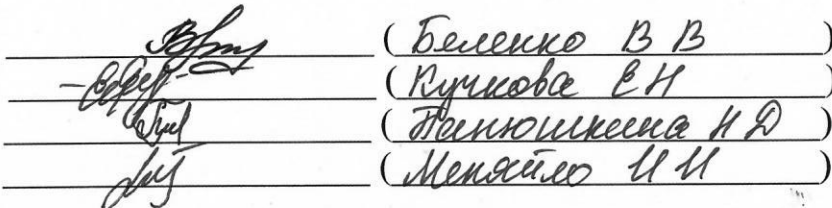 (Беленко В В)
(Кучкова Е Н)
(Панюшкина Н Д)
(Меняйло И И)